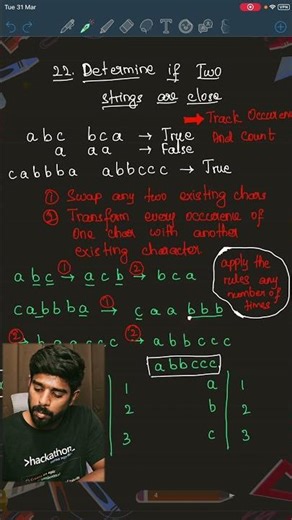 Tue 31 Mar
VPN
22. Determine if Two
strings are close
→ Track Occuren
And Count
abc bca → True
a aa → False
cabbba abbccc → True
① Swap any two existing chars
② Transform every occurence of
one char with another
existing character
apply the
rules any
number of
times
abc ① → acb ② → bca
cabbba ① → caabbb
② → baaccc ② → abbccc
abbccc
1 a 1
2 b 2
3 c 3
>hackathon